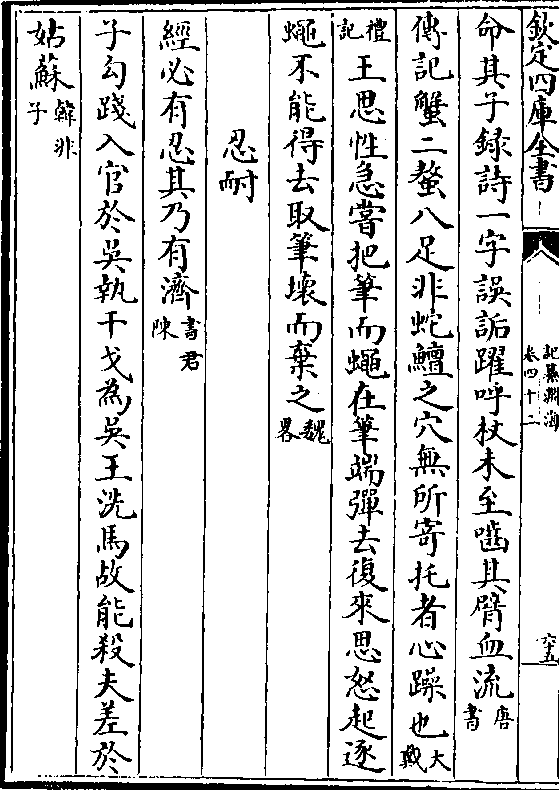 欽定四庫全書
記纂淵海
卷四十二
六五
命其子録詩一字誤詬躍呼杖未至嚙其臂血流唐書
傳記蟹二螯八足非蛇鱣之穴無所寄托者心躁也大戴
禮記王思性急嘗把筆而蠅在筆端彈去復來思怒起逐
蠅不能得去取筆壞而棄之魏畧
忍耐
經必有忍其乃有濟書君陳
子勾踐入官於吳執干戈為吳王洗馬故能殺夫差於
姑蘇韓非子